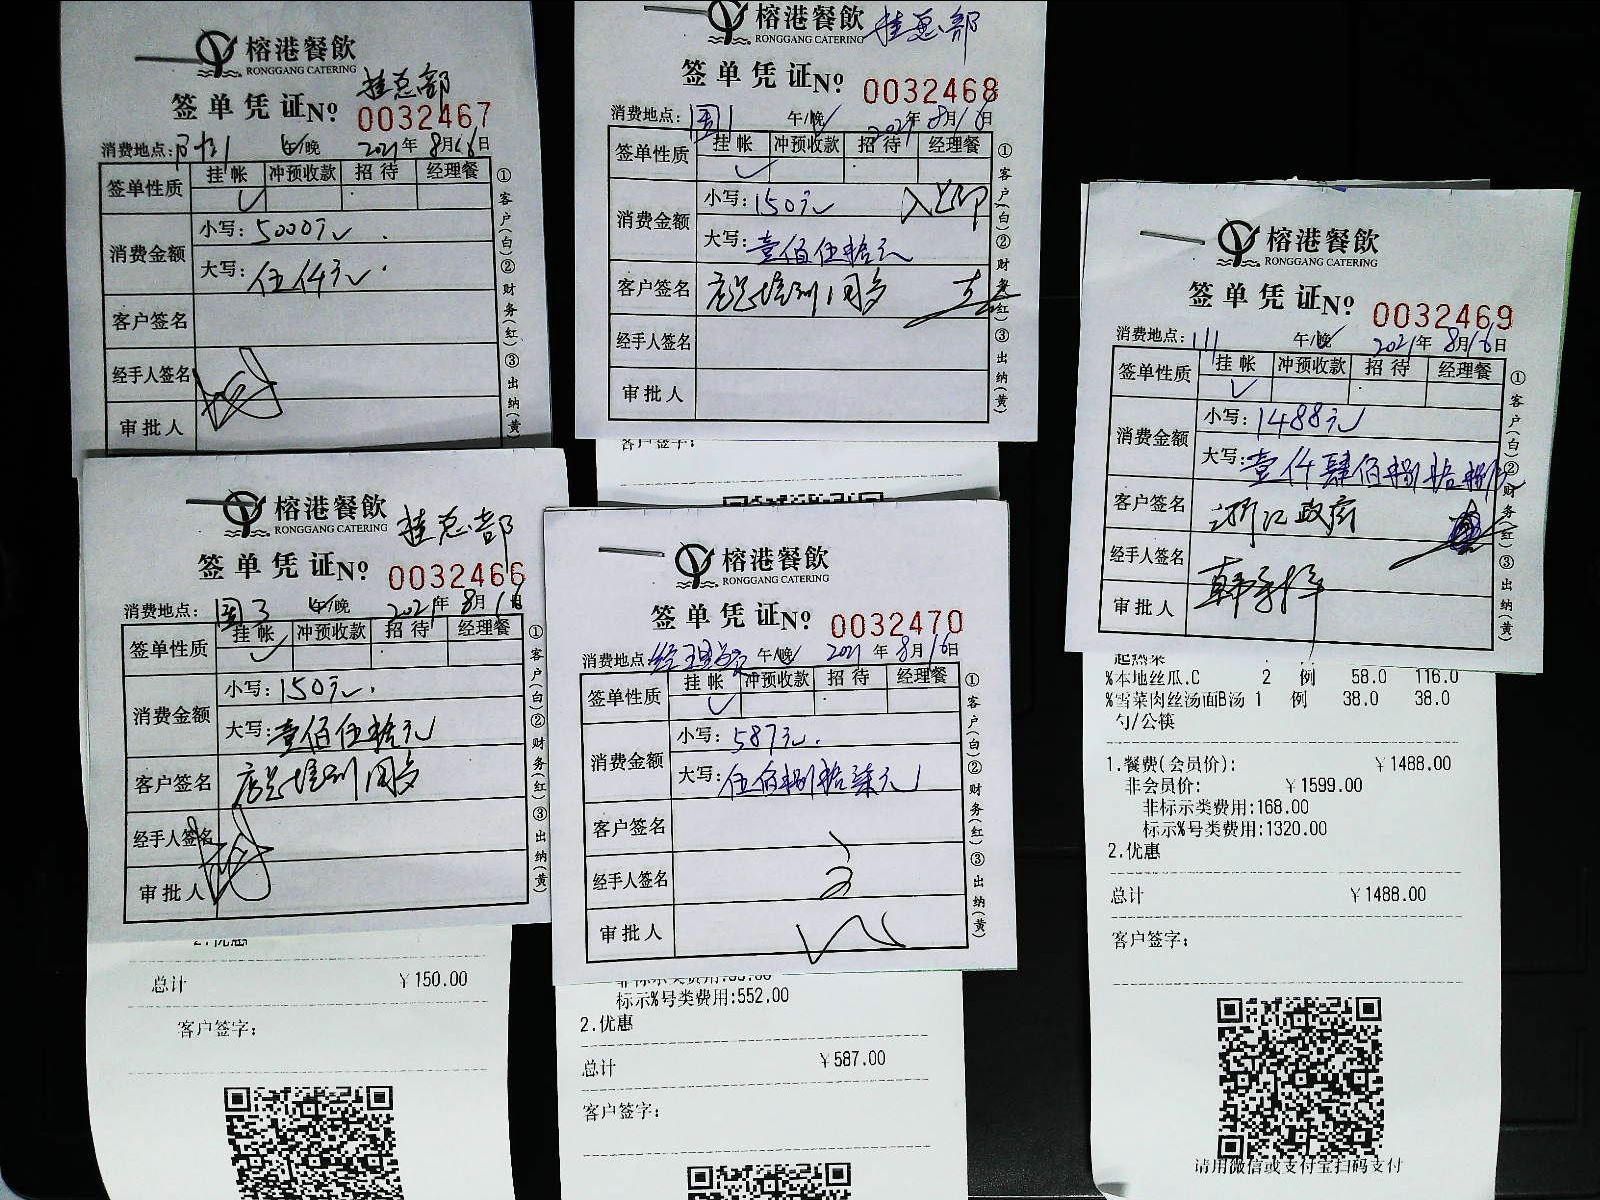 榕港餐飲
RONGGANG CATERING
挂总部
签单凭证No. 0032467
消费地点: 午/晚 2021年8月16日
签单性质 挂帐 冲预收款 招待 经理餐
消费金额
小写: 5000元
大写: 伍仟元
客户签名
经手人签名
审批人
①客户(白)②财务(红)③出纳(黄)
榕港餐飲
RONGGANG CATERING
挂总部
签单凭证No. 0032468
消费地点: 周1 午/晚 2021年8月16日
签单性质 挂帐 冲预收款 招待 经理餐
消费金额
小写: 150元
大写: 壹佰伍拾元
客户签名 店总培训 周多
经手人签名
审批人
①客户(白)②财务(红)③出纳(黄)
客户签字:
榕港餐飲
RONGGANG CATERING
签单凭证No. 0032469
消费地点: 111 午/晚 2021年8月16日
签单性质 挂帐 冲预收款 招待 经理餐
消费金额
小写: 1488元
大写: 壹仟肆佰捌拾捌
客户签名 浙江政府
经手人签名
审批人
①客户(白)②财务(红)③出纳(黄)
起热菜
%本地丝瓜.C 2 例 58.0 116.0
%雪菜肉丝汤面B汤 1 例 38.0 38.0
勺/公筷
1.餐费(会员价): ¥1488.00
非会员价: ¥1599.00
非标示类费用:168.00
标示%号类费用:1320.00
2.优惠
总计 ¥1488.00
客户签字:
请用微信或支付宝扫码支付
榕港餐飲
RONGGANG CATERING
挂总部
签单凭证No. 0032466
消费地点: 周3 午/晚 2021年8月16日
签单性质 挂帐 冲预收款 招待 经理餐
消费金额
小写: 150元
大写: 壹佰伍拾元
客户签名 店总培训 周多
经手人签名
审批人
①客户(白)②财务(红)③出纳(黄)
2.优惠
总计 ¥150.00
客户签字:
榕港餐飲
RONGGANG CATERING
签单凭证No. 0032470
消费地点: 经理餐 午/晚 2021年8月16日
签单性质 挂帐 冲预收款 招待 经理餐
消费金额
小写: 587元
大写: 伍佰捌拾柒元
客户签名
经手人签名
审批人
①客户(白)②财务(红)③出纳(黄)
标示%号类费用:552.00
2.优惠
总计 ¥587.00
客户签字: